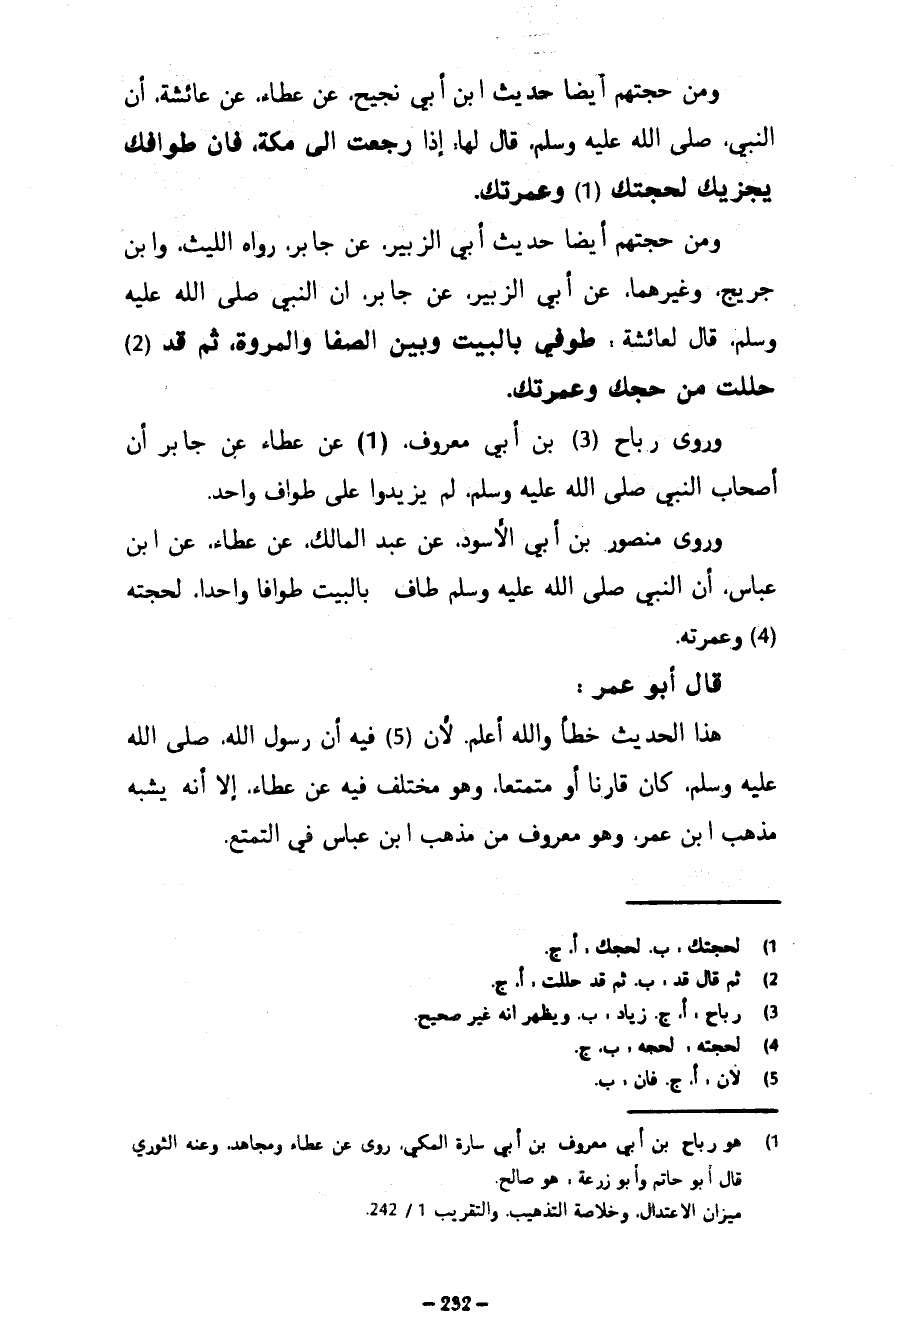 ومن حجتهم أيضا حديث ابن أبي نجيح، عن عطاء، عن عائشة، أن
النبي، صلى الله عليه وسلم، قال لها: إذا رجعت الى مكة، فان طوافك
يجزيك لحجتك (1) وعمرتك.
ومن حجتهم أيضا حديث أبي الزبير، عن جابر، رواه الليث، وابن
جريج، وغيرهما، عن أبي الزبير، عن جابر، ان النبي صلى الله عليه
وسلم، قال لعائشة : طوفي بالبيت وبين الصفا والمروة، ثم قد (2)
حللت من حجك وعمرتك.
وروى رباح (3) بن أبي معروف، (1) عن عطاء عن جابر أن
أصحاب النبي صلى الله عليه وسلم، لم يزيدوا على طواف واحد.
وروى منصور بن أبي الأسود، عن عبد المالك، عن عطاء، عن ابن
عباس، أن النبي صلى الله عليه وسلم طاف بالبيت طوافا واحدا، لحجته
(4) وعمرته.
قال أبو عمر :
هذا الحديث خطأ والله أعلم، لأن (5) فيه أن رسول الله، صلى الله
عليه وسلم، كان قارنا أو متمتعا، وهو مختلف فيه عن عطاء، إلا أنه يشبه
مذهب ابن عمر، وهو معروف من مذهب ابن عباس في التمتع.
1) لحجتك : ب. لحجك : أ. ج.
2) ثم قال قد : ب. ثم قد حللت : أ. ج.
3) رباح : أ. ج. زياد : ب. ويظهر انه غير صحيح.
4) لحجته : لحجه : ب. ج.
5) لأن : أ. ج. فان : ب.
1) هو رباح بن أبي معروف بن أبي سارة المكي، روى عن عطاء ومجاهد، وعنه الثوري
قال أبو حاتم وأبو زرعة : هو صالح.
ميزان الاعتدال، وخلاصة التذهيب، والتقريب 1 / 242.
– 232 –